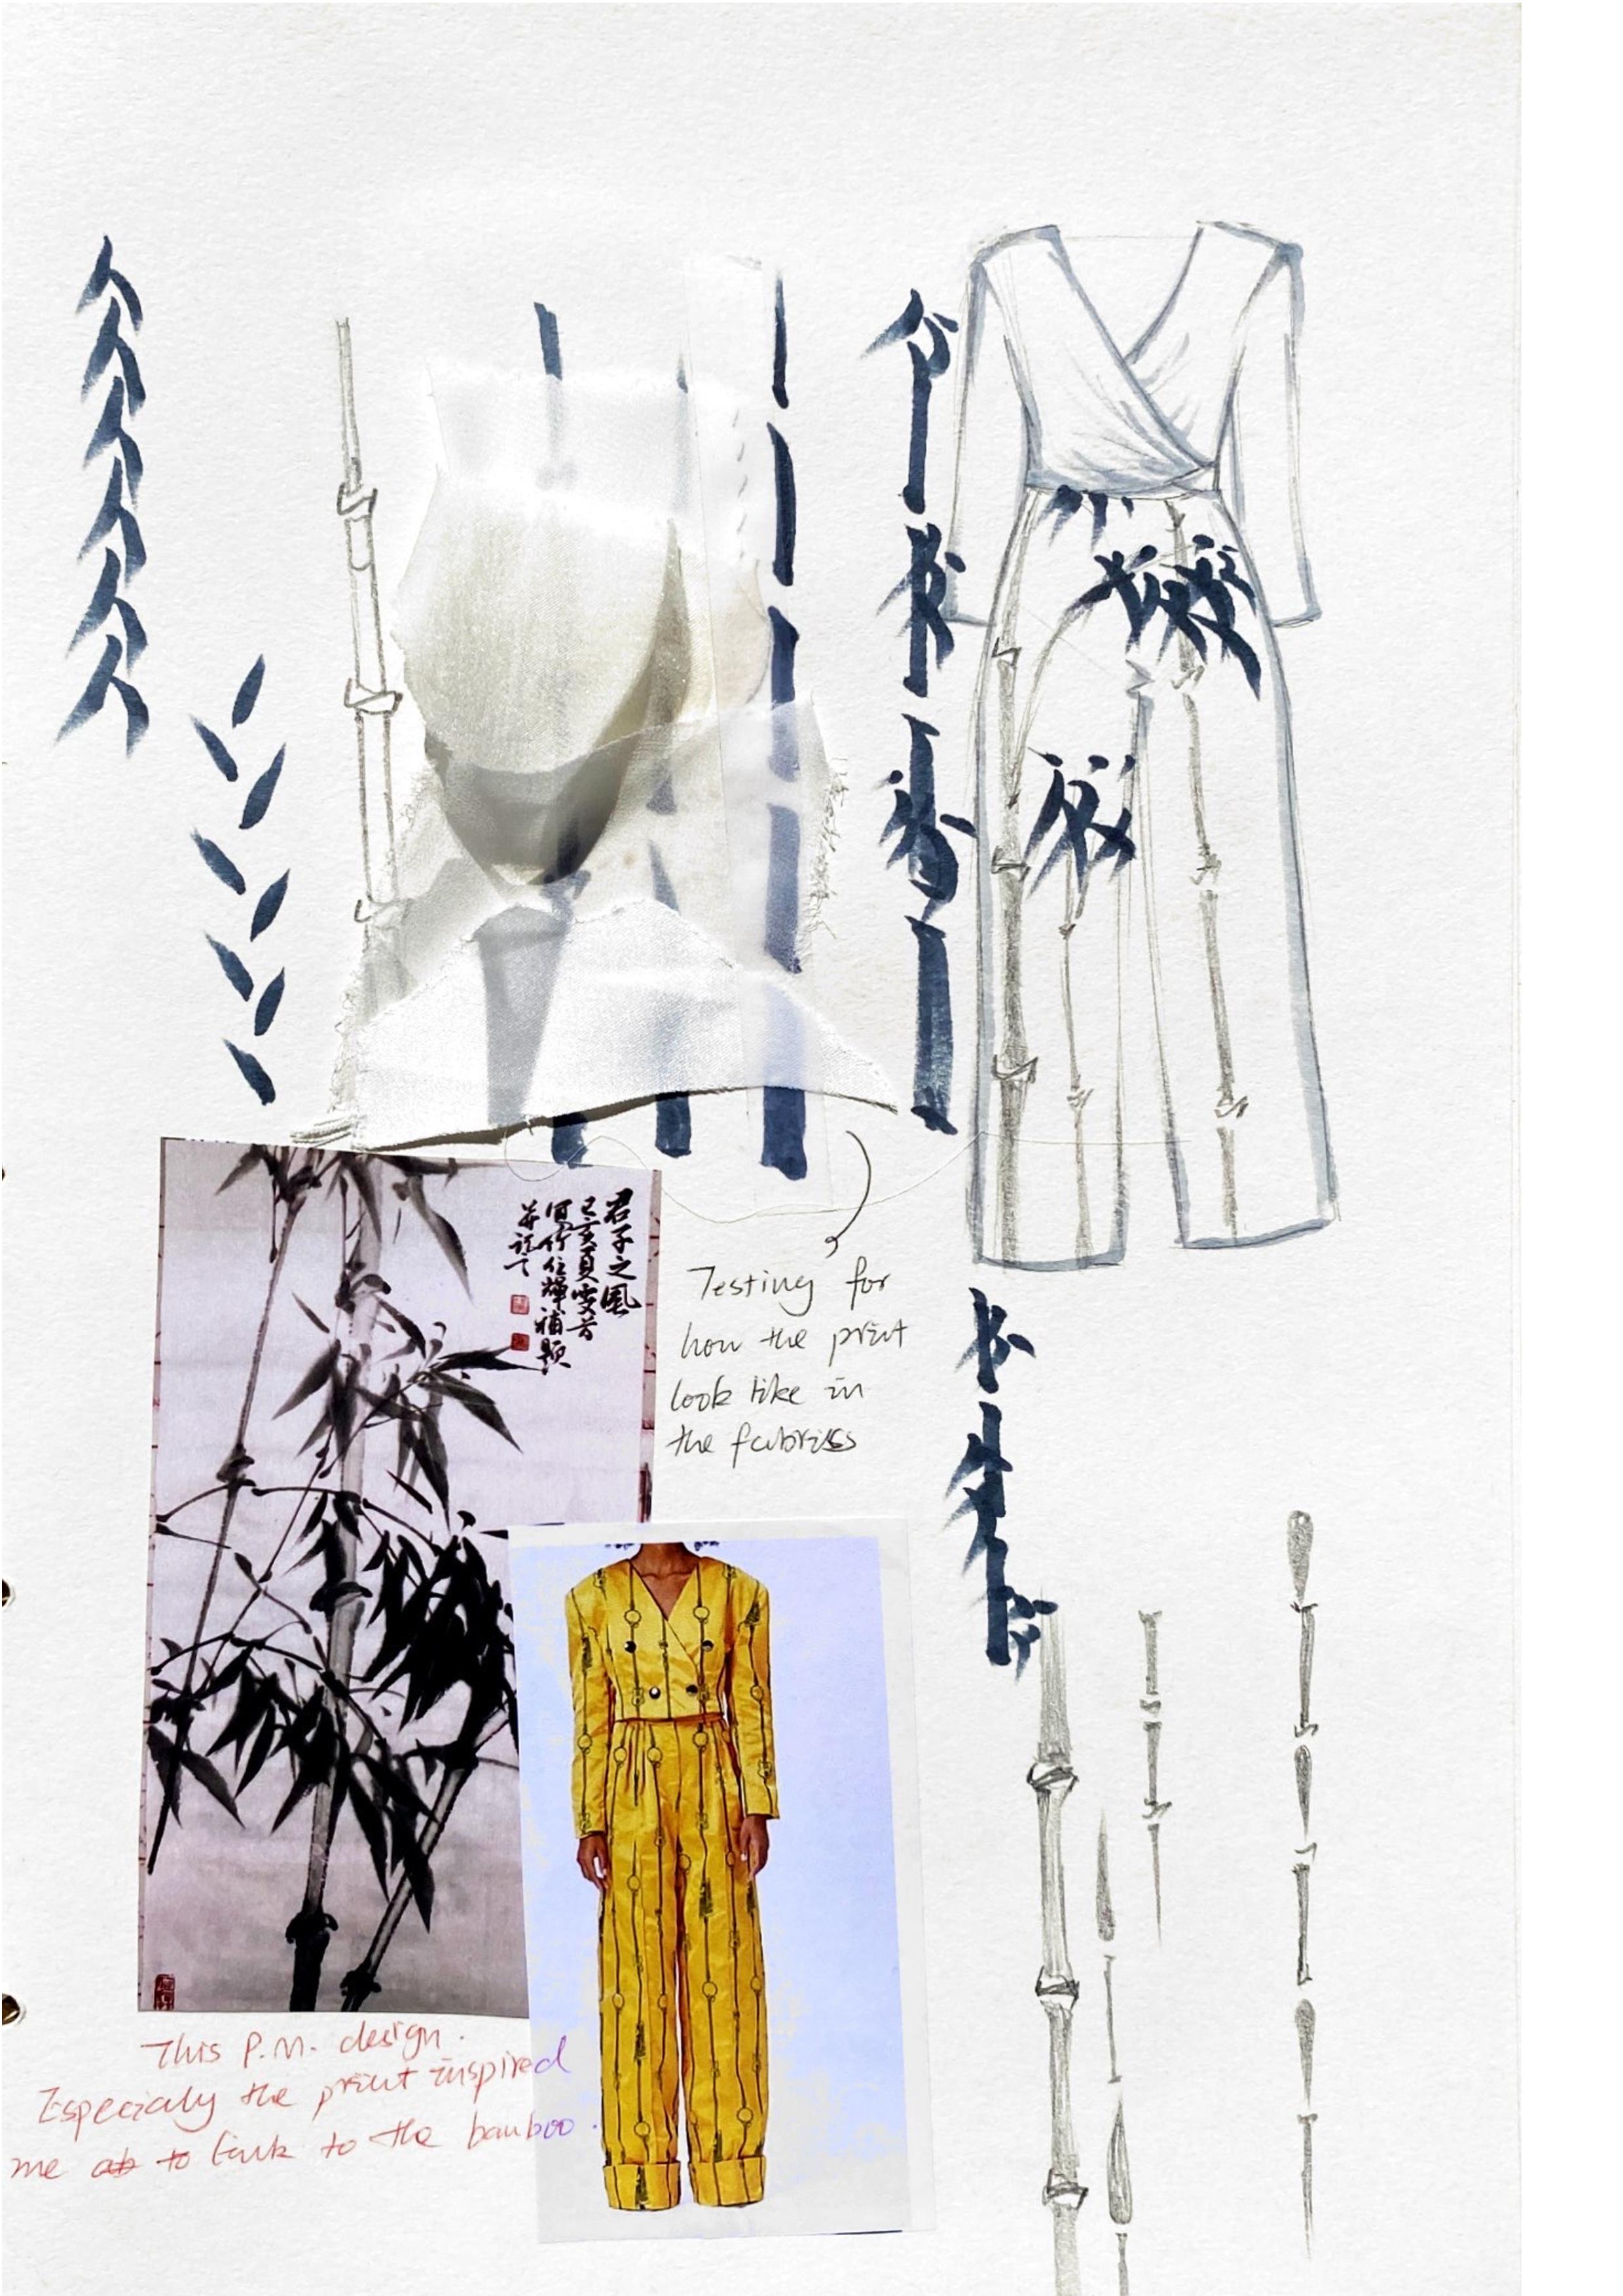 君子之風
己亥夏雯首
画竹位輝補題
并記之
Testing for
how the print
look like in
the fabrics
This P.M. design.
Especialy the print inspired
me ab to link to the bamboo.